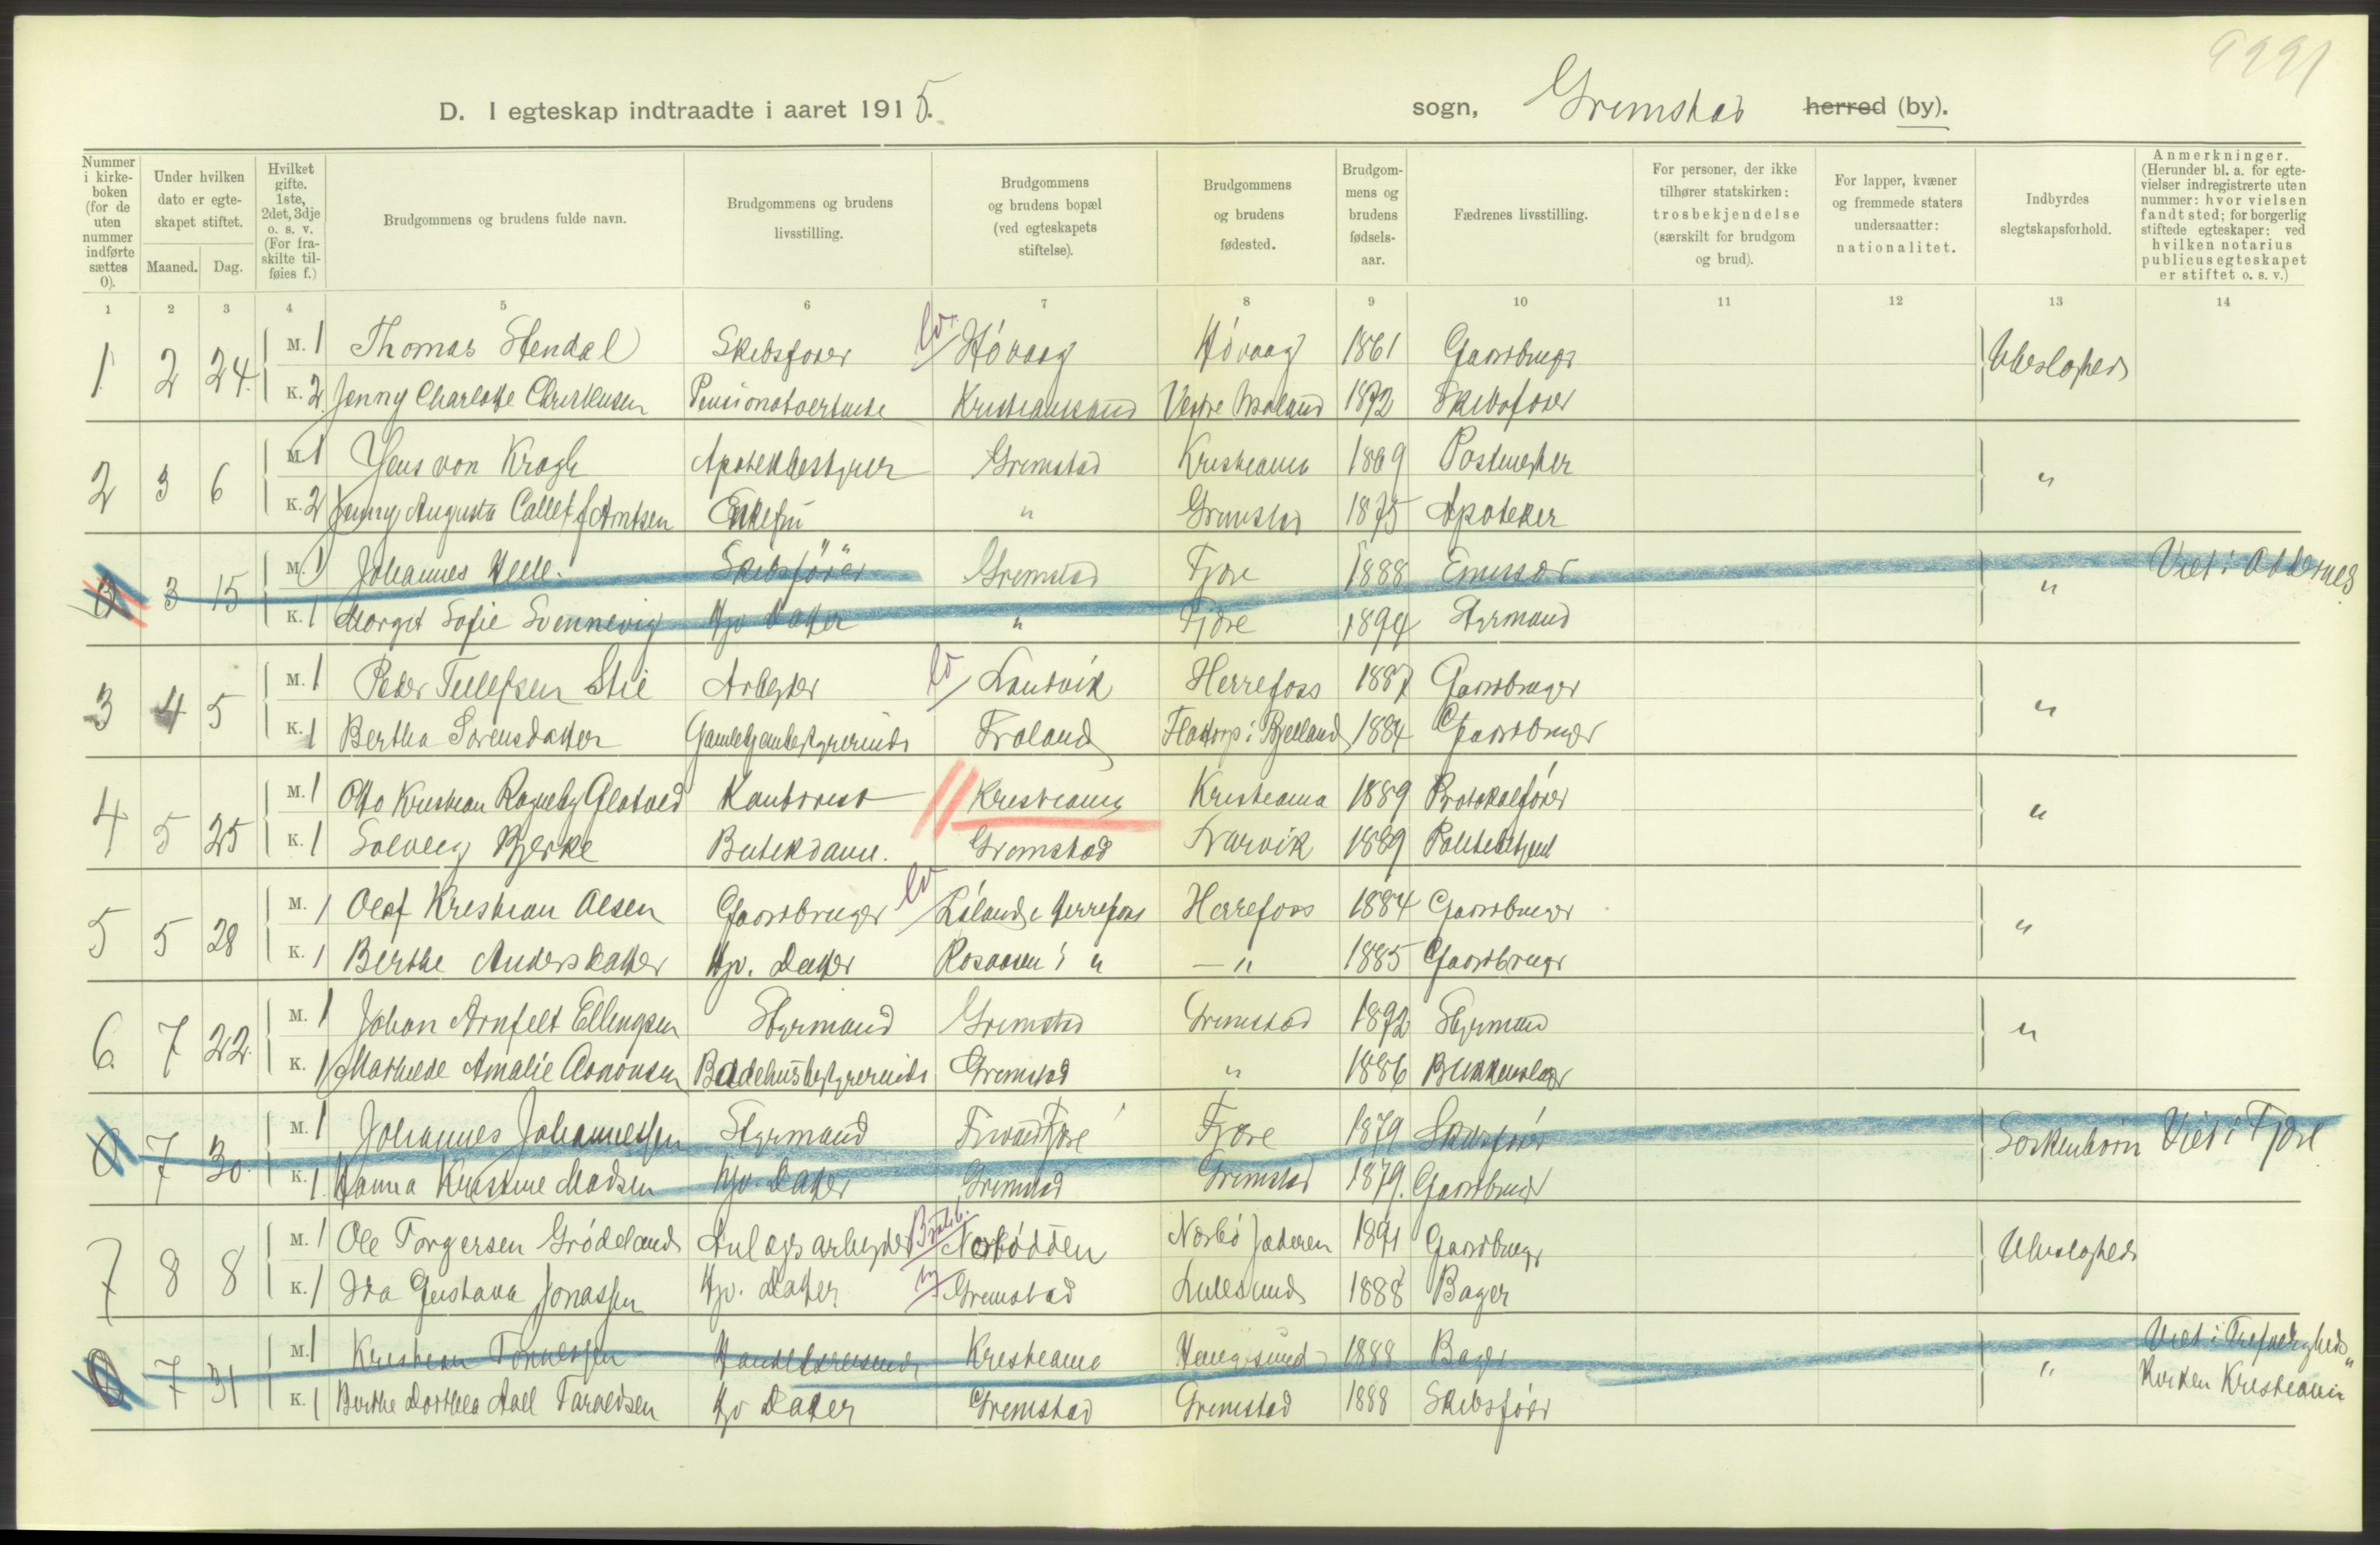 9991
D. I egteskap indtraadte i aaret 1915. sogn, Grimstad herred (by).
Nummer i kirke-boken (for de uten nummer indførte sættes 0).
Under hvilken dato er egte-skapet stiftet. Maaned. Dag.
Hvilket gifte. 1ste, 2det, 3dje o. s. v. (For fra-skilte til-føies f.)
Brudgommens og brudens fulde navn.
Brudgommens og brudens livsstilling.
Brudgommens og brudens bopæl (ved egteskapets stiftelse).
Brudgommens og brudens fødested.
Brudgom-mens og brudens fødsels-aar.
Fædrenes livsstilling.
For personer, der ikke tilhører statskirken: trosbekjendelse (særskilt for brudgom og brud).
For lapper, kvæner og fremmede staters undersaatter: nationalitet.
Indbyrdes slegtskapsforhold.
Anmerkninger. (Herunder bl. a. for egte-vielser indregistrerte uten nummer: hvor vielsen fandt sted; for borgerlig stiftede egteskaper: ved hvilken notarius publicus egteskapet er stiftet o. s. v.)
1 2 3 4 5 6 7 8 9 10 11 12 13 14
1 2 24. M. 1 Thomas Stendal Skibsfører Høvaag Høvaag 1861 Gaardbruger Ubeslægted
K. 2 Jenny Charlotte Christensen Pensionatvertinde Kristianssand Vestre Moland 1872 Skibsfører
2 3 6 M. 1 Jens von Krogh Apothekbestyrer Grimstad Kristiania 1869 Postmester "
K. 2 Jenny Augusta Callet f. Arntsen Enkefru " Grimstad 1875 Apoteker
0 3 15 M. 1 Johannes Skibsfører Grimstad Fjære 1888 Emissær " Viet i Oddernes
K. 1 Margit Sofie Svennevig Hjv Datter " Fjære 1894 Styrmand
3 4 5 M. 1 Peder Tellefsen Stie Arbeyder Landvik Herrefoss 1887 Gaardbruger "
K. 1 Bertha Sørensdatter Gamlehjembestyrerinde Froland i Bjelland 1884 Gaardbruger
4 5 25 M. 1 Otto Kristian Ragneby Glatved Kontorist Kristiania Kristiania 1889 Protokolfører "
K. 1 Solveig Bjerke Butikdame. Grimstad Narvik 1889 Politibetjent
5 5 28 M. 1 Olaf Kristian Olsen Gaardbruger Liland i Herrefoss Herrefoss 1884 Gaardbruger "
K. 1 Berthe Andersdatter Hjv. Datter Rosaasen i " — " 1885 Gaardbruger
6. 7 22. M. 1 Johan Arnfelt Ellingsen Styrmand Grimstad Grimstad 1892 Styrmand "
K. 1 Mathilde Amalie Aanonsen Badehusbestyrerinde Grimstad " 1886 Blikkenslager
0 7 30. M. 1 Johannes Johannessen Styrmand Fjære 1879 Skibsfører Søskenbørn Viet i Fjære
K. 1 Hanna Kristine Madsen Hjv. Datter Grimstad Grimstad 1879. Gaardbruger
7 8 8 M. 1 Ole Torgersen Grødeland Anlægsarbeyder Nærbø Jæderen 1891 Gaardbruger Ubeslægted
K. 1 Ida Gustava Jonassen Hjv. Datter Grimstad Lillesand 1888 Bager
0 7 31 M. 1 Kristian Tønnessen Handelsreisende Kristiania Haugesund 1888 Bager " Viet i Trefoldigheds
K. 1 Berthe Dorthea Aall Taraldsen Hjv Datter Grimstad Grimstad 1888 Skibsfører Kirken Kristiania